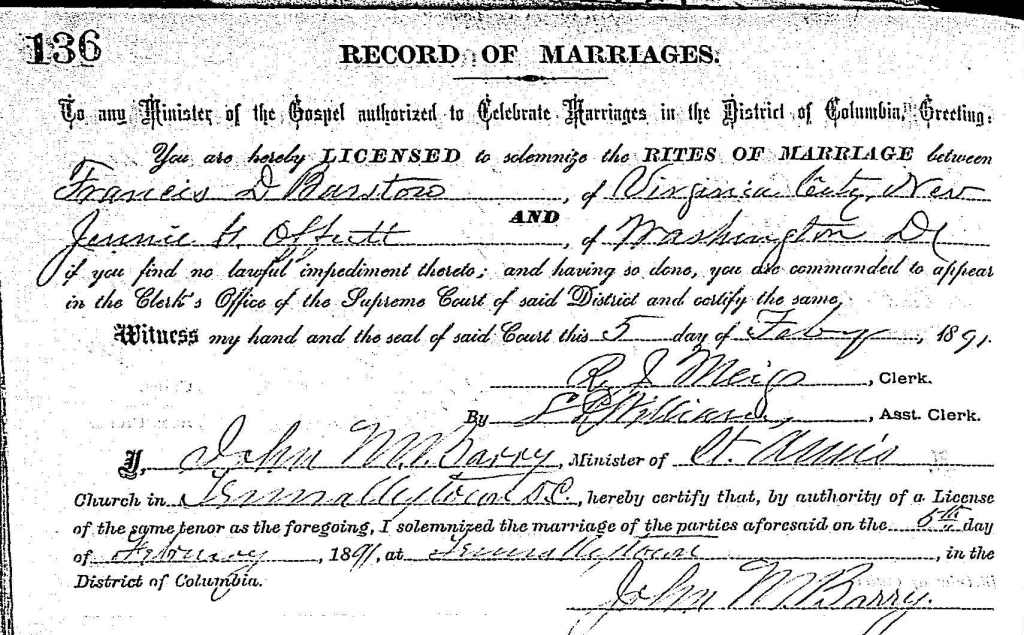 136
RECORD OF MARRIAGES.
To any Minister of the Gospel authorized to Celebrate Marriages in the District of Columbia, Greeting:
You are hereby LICENSED to solemnize the RITES OF MARRIAGE between
Francis D Barstow, of Virginia City, Nev
AND
Jennie G. Offutt, of Washington DC
if you find no lawful impediment thereto; and having so done, you are commanded to appear
in the Clerk's Office of the Supreme Court of said District and certify the same,
Witness my hand and the seal of said Court this 5 day of Feby, 1891.
R. J Meigs, Clerk.
By Williams, Asst. Clerk.
I, John M. Barry, Minister of St. Ann's
Church in Tennallytown D.C., hereby certify that, by authority of a License
of the same tenor as the foregoing, I solemnized the marriage of the parties aforesaid on the 5th day
of February, 1891, at Tennallytown, in the
District of Columbia.
John M Barry.